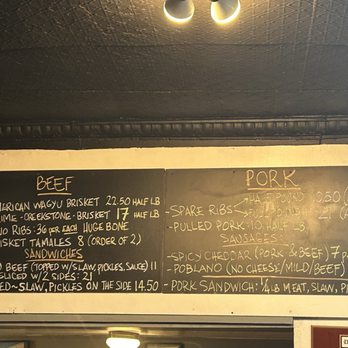 BEEF
ERICAN WAGYU BRISKET 22.50 HALF LB
IME-CREEKSTONE-BRISKET 17 HALF LB
NO RIBS: 36 per EACH HUGE BONE
ISKET TAMALES 8 (ORDER OF 2)
SANDWICHES
D BEEF (TOPPED W/SLAW, PICKLES, SAUCE) 11
SLICED W/2 SIDES: 21
ED~SLAW, PICKLES ON THE SIDE 14.50
PORK
-SPARE RIBS
-PULLED PORK-10 HALF LB
SAUSAGES
-SPICY CHEDDAR (PORK & BEEF) 7
-POBLANO (NO CHEESE/MILD/BEEF)
-PORK SANDWICH: 1/4 LB MEAT, SLAW, PI